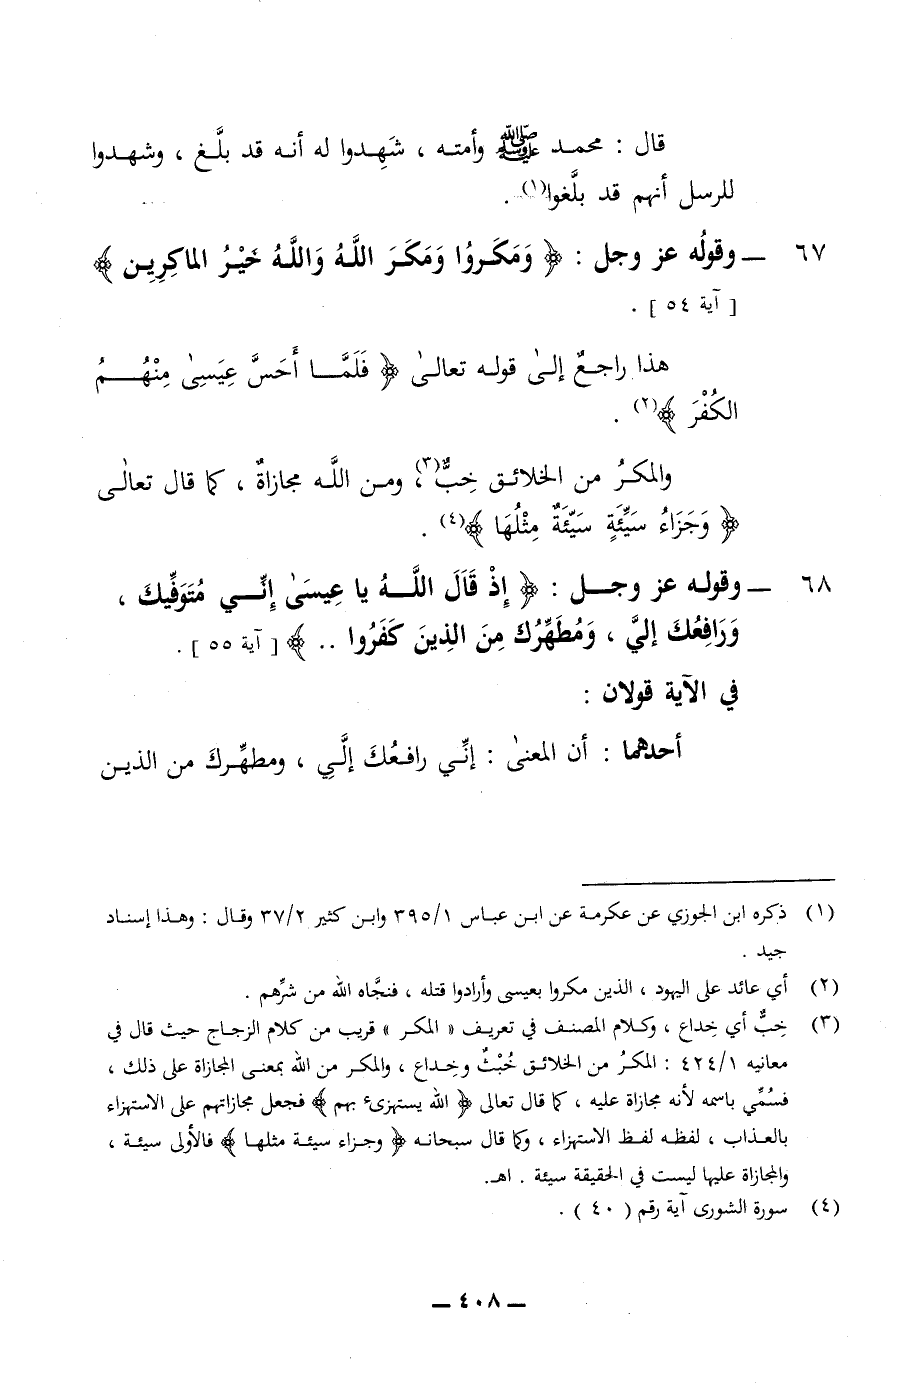 قال : محمد ﷺ وأمته ، شَهِدوا له أنه قد بلَّغ ، وشهدوا
للرسل أنهم قد بلَّغوا(١) .
٦٧ ـ وقولُه عز وجل : ﴿ وَمَكَروُا وَمَكَرَ اللَّهُ وَاللَّهُ خَيْرُ الماكِرِين ﴾
[ آية ٥٤ ] .
هذا راجعٌ إلىٰ قوله تعالىٰ ﴿ فَلَمَّا أَحَسَّ عِيَسىٰ مِنْهُم
الكُفْرَ ﴾(٢) .
والمكرُ من الخلائق خِبٌّ(٣)، ومن اللَّه مجازاةٌ ، كما قال تعالىٰ
﴿ وَجَزَاءُ سَيِّئَةٍ سَيِّئَةٌ مِثْلُهَا ﴾(٤) .
٦٨ ـ وقوله عز وجل : ﴿ إِذْ قَالَ اللَّهُ يا عِيسَىٰ إِنِّي مُتَوَفِّيكَ ،
وَرَافِعُكَ إليَّ ، وَمُطَهِّرُكَ مِنَ الذِينَ كَفَرُوا .. ﴾ [ آية ٥٥ ] .
في الآية قولان :
أحدهما : أن المعنىٰ : إنِّي رافعُكَ إلَّي ، ومطهِّرك من الذين
(١) ذكره ابن الجوزي عن عكرمة عن ابن عباس ٣٩٥/١ وابن كثير ٣٧/٢ وقال : وهذا إسناد
جيد .
(٢) أي عائد على اليهود ، الذين مكروا بعيسى وأرادوا قتله ، فنجَّاه الله من شرِّهم .
(٣) خِبٌّ أي خِداع ، وكلام المصنف في تعريف « المكر » قريب من كلام الزجاج حيث قال في
معانيه ٤٢٤/١ : المكرُ من الخلائق خُبْثٌ وخِداع ، والمكر من الله بمعنى المجازاة على ذلك ،
فسُمِّي باسمه لأنه مجازاة عليه ، كما قال تعالى ﴿ الله يستهزىء بهم ﴾ فجعل مجازاتهم على الاستهزاء
بالعذاب ، لفظه لفظ الاستهزاء ، وكما قال سبحانه ﴿ وجزاء سيئة مثلها ﴾ فالأولى سيئة ،
والمجازاة عليها ليست في الحقيقة سيئة . اهـ.
(٤) سورة الشورى آية رقم ( ٤٠ ) .
ـ ٤٠٨ ـ